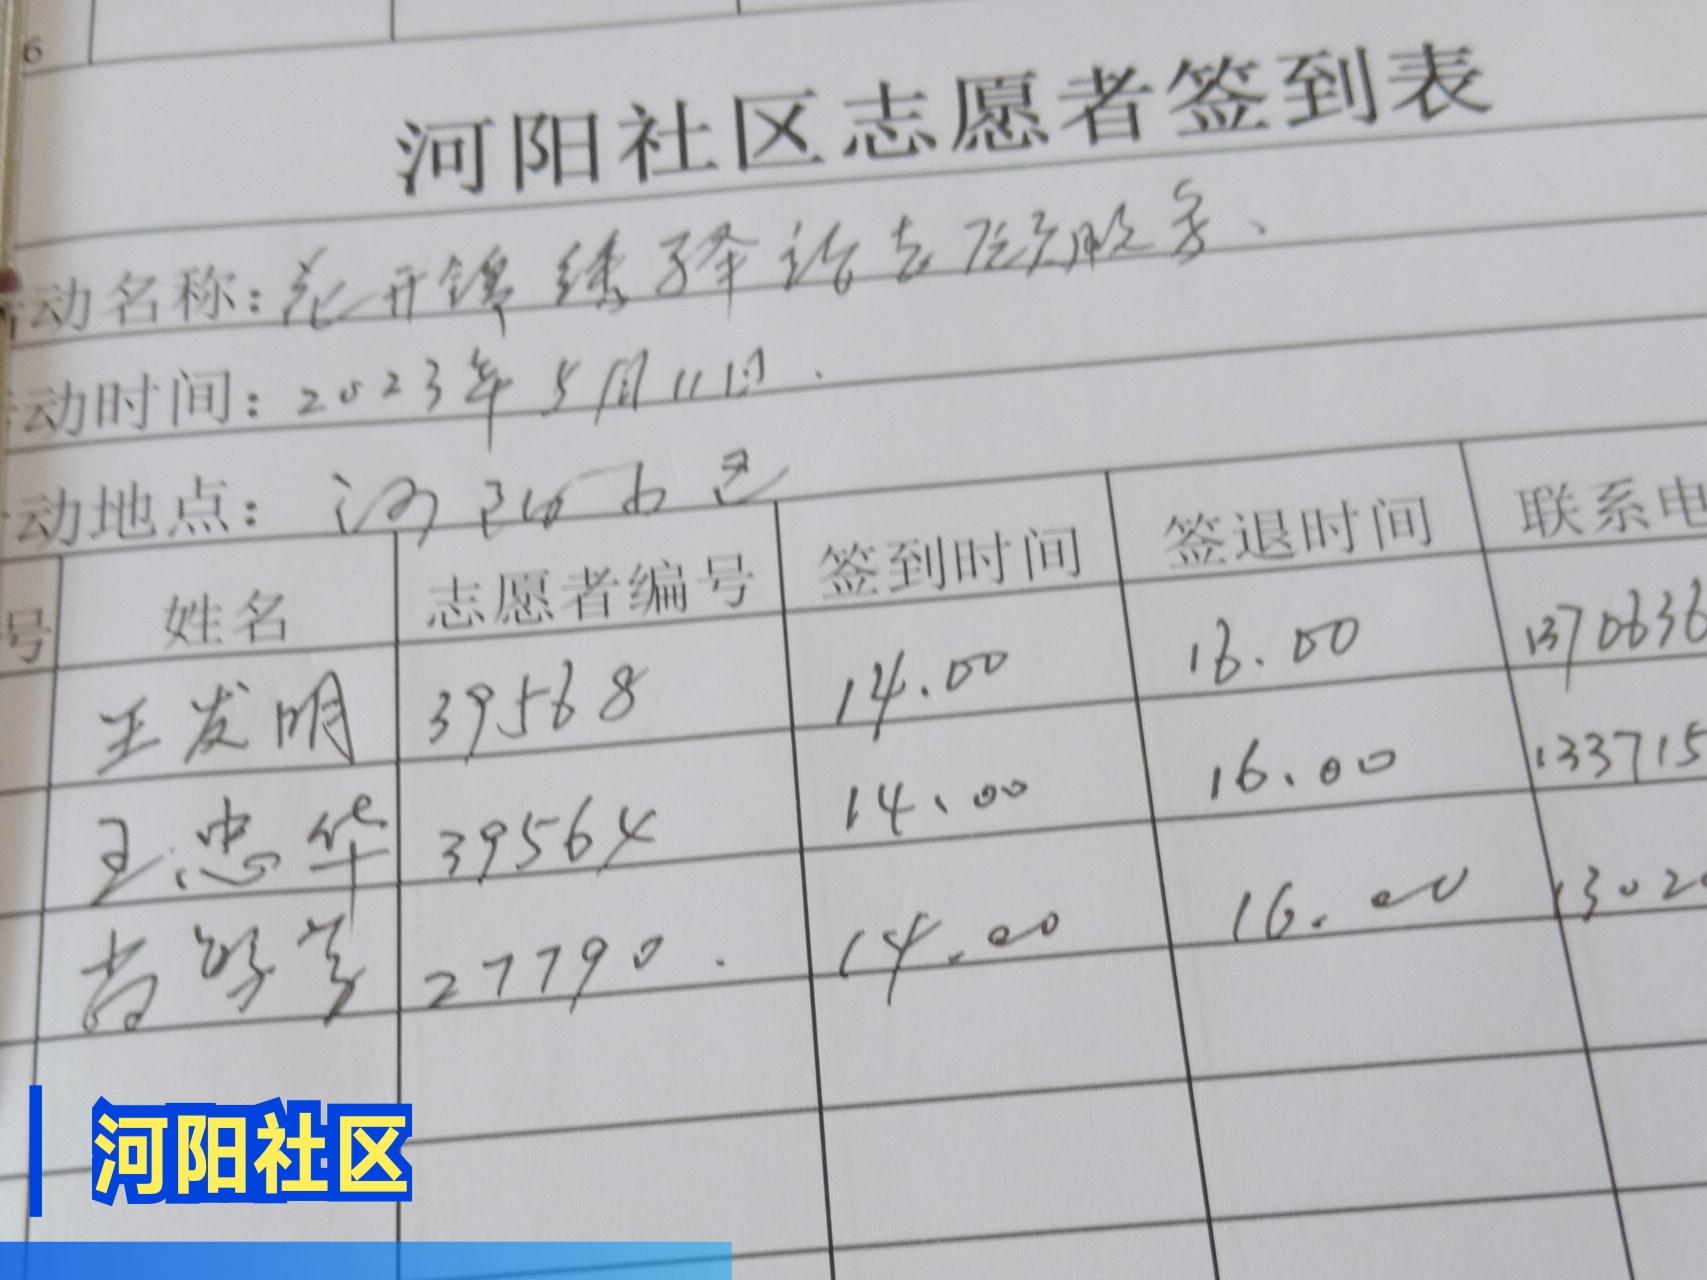 6
河阳社区志愿者签到表
活动名称：花开锦绣驿站志愿服务、
活动时间：2023年5月11日.
活动地点：河阳社区
号 姓名 志愿者编号 签到时间 签退时间 联系电
王发明 39568 14.00 16.00 1370636
王忠华 39564 14.00 16.00 133715
27790. 14.00 16.00 1302
河阳社区